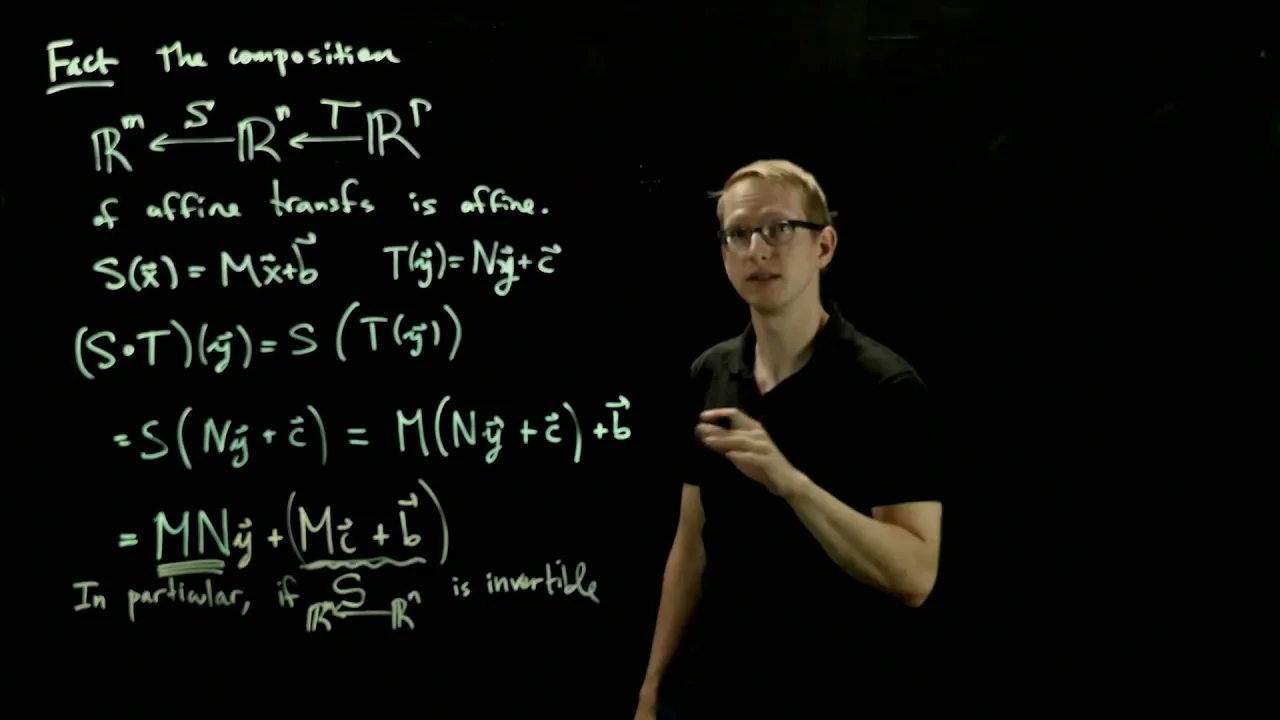 Fact The composition
ℝᵐ ←S ℝⁿ ←T ℝᵖ
of affine transfs is affine.
S(x⃗) = Mx⃗+b⃗ T(y⃗)= Ny⃗+c⃗
(S∘T)(y⃗) = S (T(y⃗))
= S(Ny⃗ + c⃗) = M(Ny⃗ + c⃗) + b⃗
= MNy⃗ + (Mc⃗ + b⃗)
In particular, if ℝⁿ ←S ℝⁿ is invertible